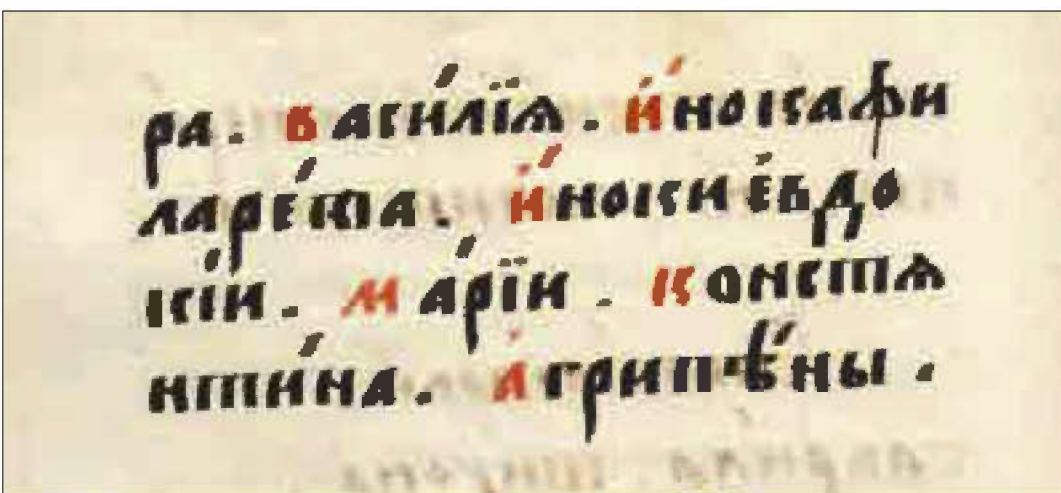 ра. васи́лїѧ. и́нокафи
ларе́та. и́ноки е҆вдо
кі́и. ма́рїи. констѧ
нти́на. а҆грипѣ́ны.